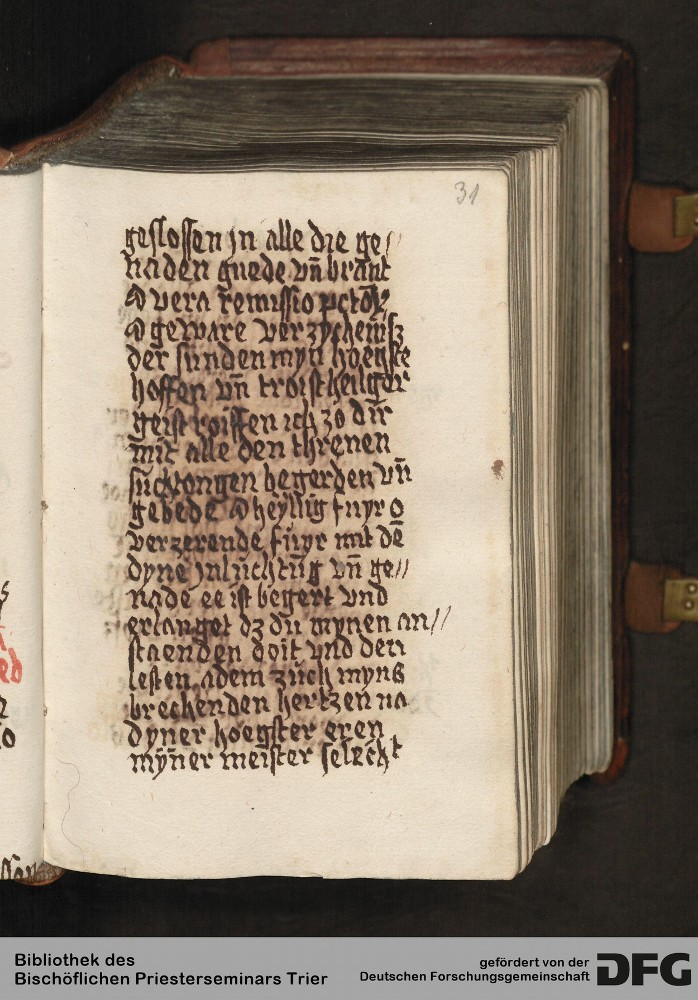 31
geslossen jn alle die ge//
naden guede vn̄ brant
O vera r̄emissio pctō℞
O geware verzychenisz
der sunden myn hoegste
hoffen vn̄ troist heiliger
geist roiffen ich zo dir
mit alle den threnen
suchtongen begerden vn̄
gebede O heyllig fuyr o
verzerende fuyr mit dē
dyne jnluchtūg vn̄ ge//
nade ee ist begert vnd
erlanget dz du mynen an//
staenden doit vnd den
lesten adem zuch myns
brechenden hertzen na
dyner hoegster eren
mẏner meister selecht
ed
o
Bibliothek des
Bischöflichen Priesterseminars Trier
gefördert von der
Deutschen Forschungsgemeinschaft
DFG